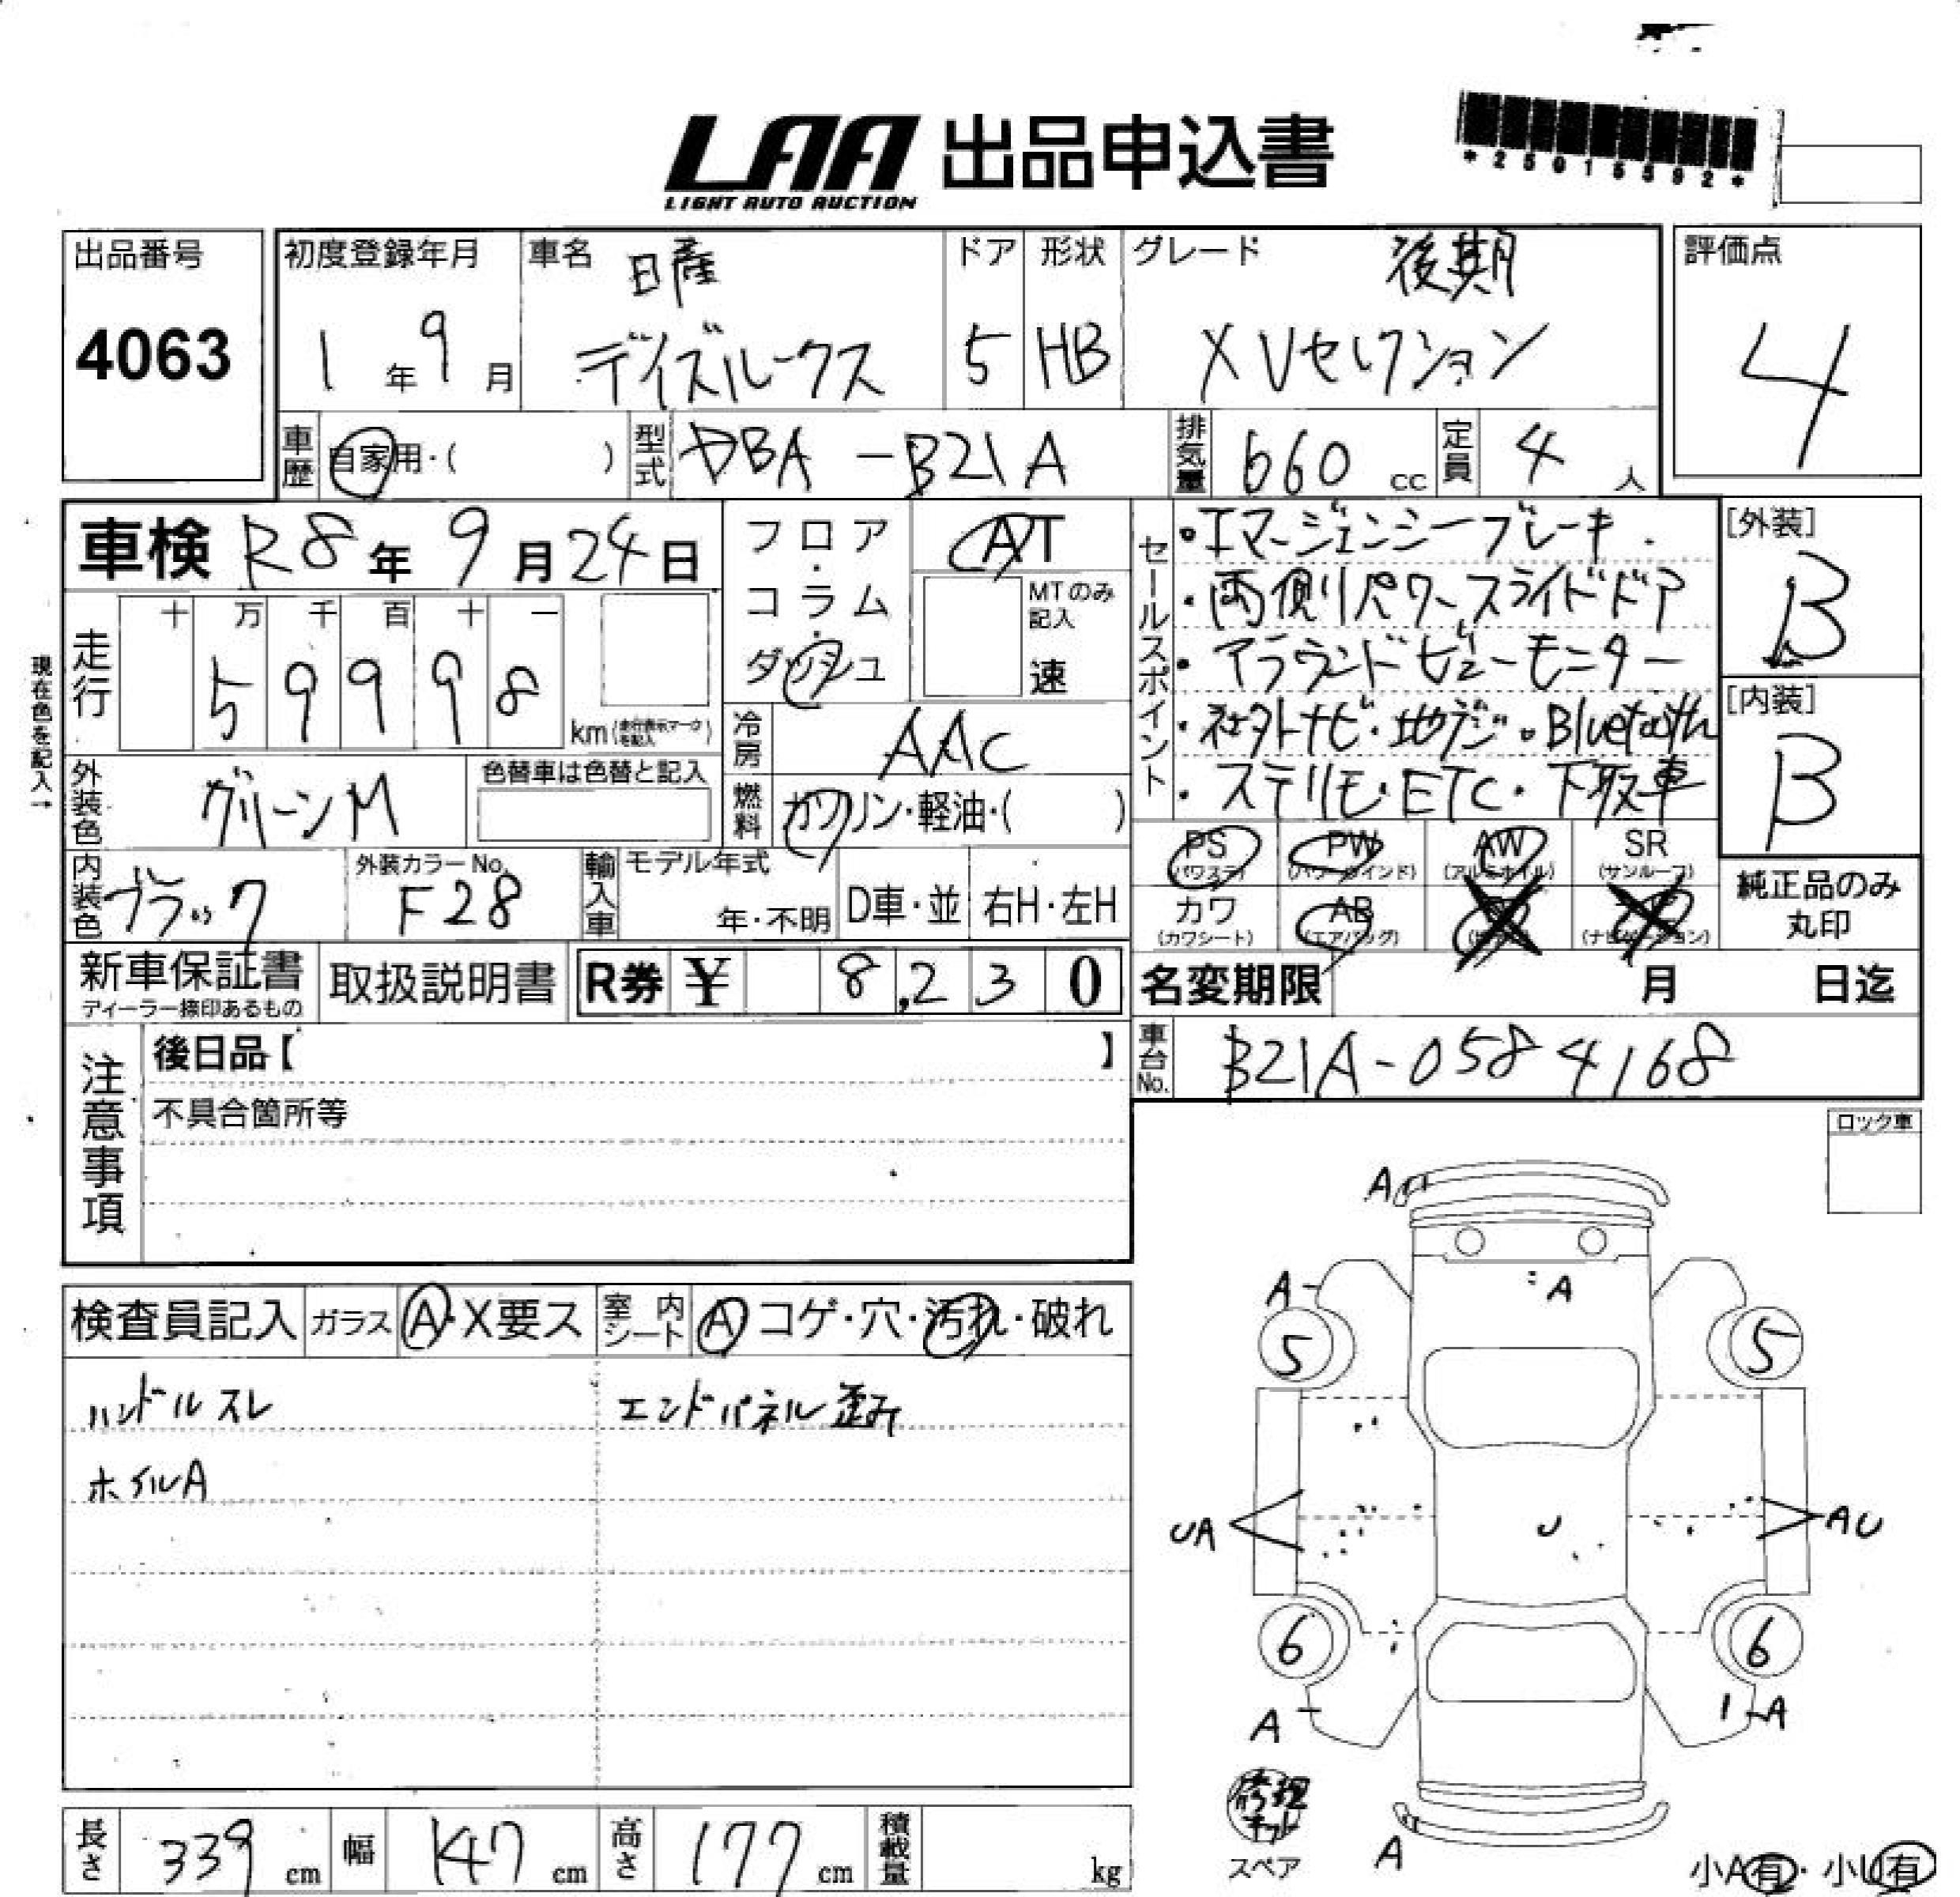 LAA 出品申込書
LIGHT AUTO AUCTION
*25015592*
出品番号
4063
初度登録年月
1年9月
車名 日産
デイズルークス
ドア
5
形状
HB
グレード 後期
X Vセレクション
評価点
4
車歴 自家用・( )
型式 DBA-B21A
排気量 660 cc
定員 4 人
車検 R8年9月24日
フロア・コラム・ダッシュ
AT
MTのみ記入
速
セールスポイント
・エマージェンシーブレーキ
・両側パワースライドドア
・アラウンドビューモニター
・社外ナビ・地デジ・Bluetooth
・ステリモ・ETC・下取車
[外装]
B
[内装]
B
現在色を記入→
走行
十 万 千 百 十 一
5 9 9 9 8
km(走行表示マークを記入)
冷房 AAC
燃料 ガソリン・軽油・( )
外装色 グリーンM
色替車は色替と記入
内装色 ブラック
外装カラーNo.
F28
輸入車
モデル年式
年・不明
D車・並
右H・左H
PS (パワステ)
PW (パワーウインド)
AW (アルミホイル)
SR (サンルーフ)
カワ (カワシート)
AB (エアバッグ)
(ナビゲーション)
純正品のみ丸印
新車保証書
ディーラー捺印あるもの
取扱説明書
R券 ¥ 8,230
名変期限 月 日迄
車台No. B21A-0584168
注意事項
後日品【 】
不具合箇所等
ロック車
検査員記入
ガラス A・X要ス
室内シート A コゲ・穴・汚れ・破れ
ハンドルスレ
エンドパネル歪み
ホイルA
A
A
A
5
5
UA
U
AU
6
6
A
1 A
修理キット
スペア
A
小A有・小U有
長さ 339 cm
幅 147 cm
高さ 177 cm
積載量 kg